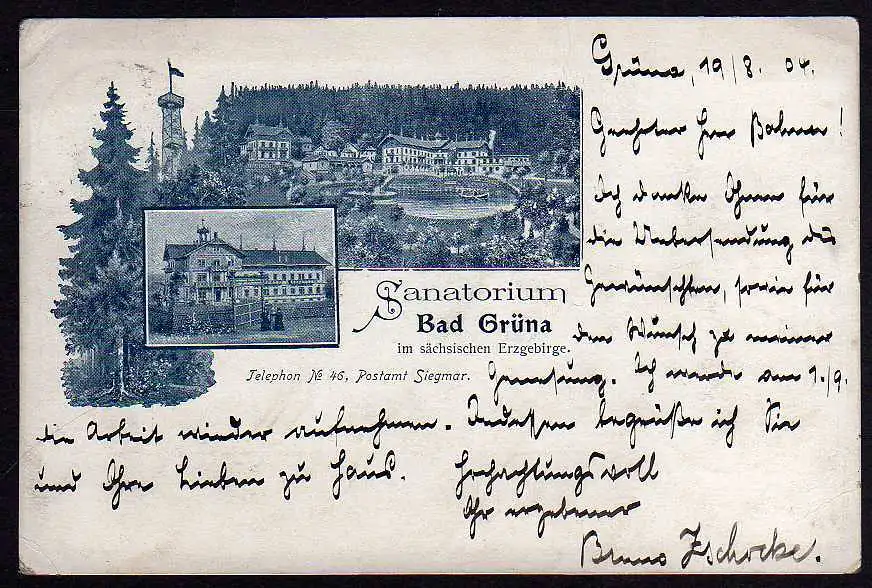 Grüna, 19/8. 04.
Geehrter Herr
Ich danke Ihnen für
die Uebersendung des
Gewünschten, sowie für
den Wunsch zu meiner
Genesung. Ich werde am 1./9.
die Arbeit wieder aufnehmen. Indessen begrüße ich Sie
und Ihre Lieben zu Haus. Hochachtungsvoll
Ihr ergebener
Bruno Zschocke.
Sanatorium
Bad Grüna
im sächsischen Erzgebirge.
Telephon № 46, Postamt Siegmar.